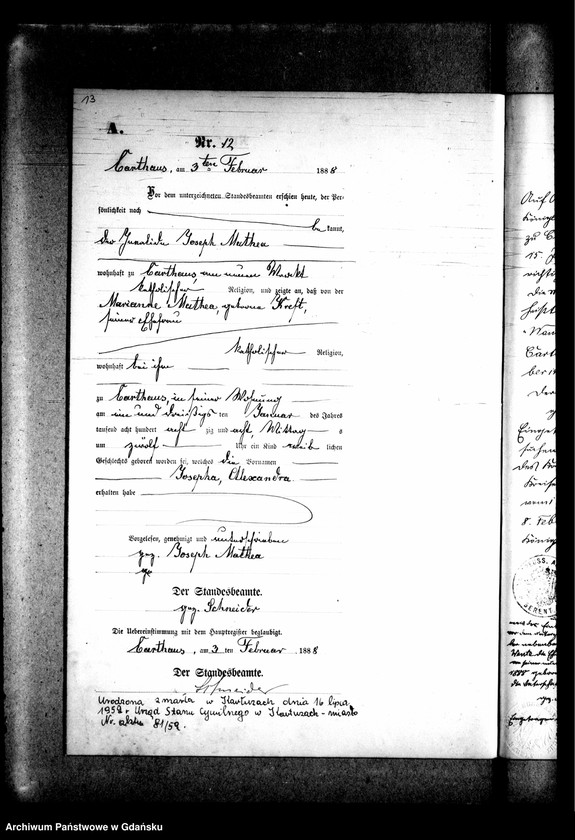 13
A.
Nr. 12
Carthaus, am 3ten Februar 1888
Vor dem unterzeichneten Standesbeamten erschien heute, der Per-
sönlichkeit nach
bekannt,
der Invalide Joseph Mathea
wohnhaft zu Carthaus, am neuen Markt
katholischer Religion, und zeigte an, daß von der
Marianne Mathea, geborene Kreft,
seiner Ehefrau
katholischer Religion,
wohnhaft bei ihm
zu Carthaus, in seiner Wohnung
am ein und dreißigsten Januar des Jahres
tausend acht hundert achtzig und acht, Mittags
um zwölf Uhr ein Kind weiblichen
Geschlechts geboren worden sei, welches die Vornamen
Josepha, Alexandra
erhalten habe
Vorgelesen, genehmigt und unterschrieben
gez. Joseph Mathea
Der Standesbeamte.
gez. Schneider
Die Uebereinstimmung mit dem Hauptregister beglaubigt.
Carthaus, am 3 ten Februar 1888
Der Standesbeamte.
Schneider
Urodzona zmarła w Kartuzach dnia 16 lipca
1959 r Urząd Stanu Cywilnego w Kartuzach-miasto
Nr. aktu 81/59.
Auf
zu
15. J
die
Cart
der
8. Feb
Archiwum Państwowe w Gdańsku